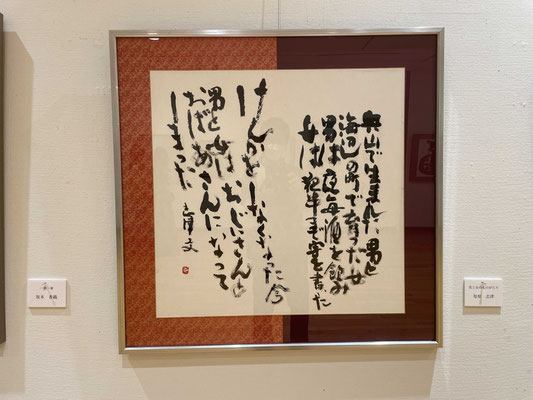 山で生まれた男と
海辺の町で育った女
男は夜毎酒を飲み
女は夜半まで字を書いた
けんかをしなくなった今
男と女は おじいさんと
おばあさんになって
しまった